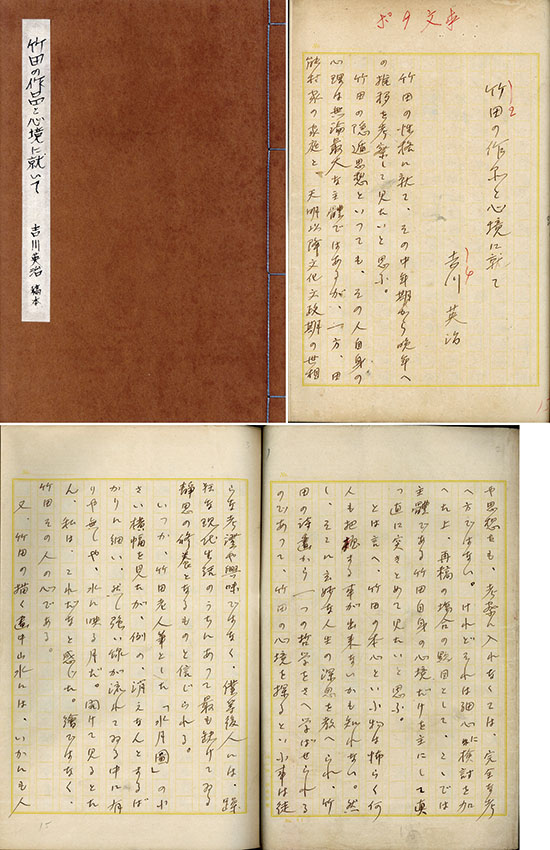 竹田の作品と心境に就いて
吉川英治 稿本
ポ9文本
12
竹田の作品と心境に就て
14
吉川英治
竹田の性格に就て、その中年期から晩年へ
の推移を考察して見たいと思ふ。
竹田の隠遁思想といつても、その人自身の
心理は無論最大な主體ではあるが、一方、田
能村家の家庭と、天明以降文化文政期の世相
や思想をも、考慮に入れなくては、完全な考
へ方ではない。けれどそれは細心な検討を加
へた上、再稿の場合の題目として、ここでは
主體である竹田自身の心境だけを主にして真
つ直に突きとめて見たいと思ふ。
とは言へ、竹田の本心といふ物は恐らく何
人も把握する事が出来ないかも知れない。然
し、それに玄妙な人生の深思を教へられ、竹
田の詩畫から一つの哲学をさへ学ばせられる
のであつて、竹田の心境を探るといふ事は徒
らな考證や興味ではなく、僕等後人には、躁
狂な現代生活のうちにあつて最も缺けてゐる
静思の修養となるものと信じられる。
いつか、竹田老人筆とした「水月圖」の小
さい横幅を見たが、例の、消えなんとするば
かりに細い、然し強い線が流れてゐる中に有
りや無しや、水に映る月だ。聞けて見るとた
ん、私は、これだなと感じた。繪ではなく、
竹田その人の心である。
又、竹田の描く畫中山水には、いかにも人
15